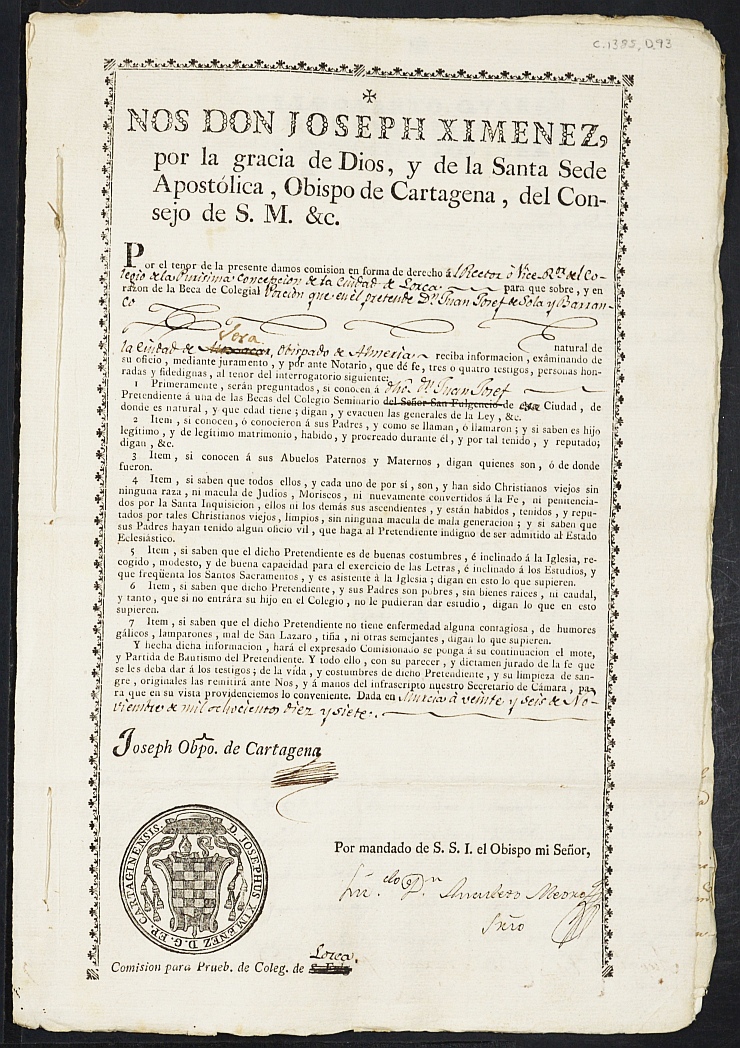 C.1385, D.93
✠
NOS DON JOSEPH XIMENEZ,
por la gracia de Dios, y de la Santa Sede
Apostólica, Obispo de Cartagena, del Con-
sejo de S. M. &c.
Por el tenor de la presente damos comision en forma de derecho á l Rector ò Vice-R.or del Co-
legio de la Purisima Concepcion de la Ciudad de Lorca para que sobre, y en
razon de la Beca de Colegial Porcion que en el pretende D.n Juan Josef de Sola y Barran-
co
Vera natural de
la Ciudad de Obispado de Almeria reciba informacion, examinando de
su oficio, mediante juramento, y por ante Notario, que dé fe, tres o quatro testigos, personas hon-
radas y fidedignas, al tenor del interrogatorio siguiente.
1 Primeramente, serán preguntados, si conocen á dho. D.n Juan Josef
Pretendiente á una de las Becas del Colegio Seminario del Señor San Fulgencio de esta Ciudad, de
donde es natural, y que edad tiene; digan, y evacuen las generales de la Ley, &c.
2 Item, si conocen, ó conocieron á sus Padres, y como se llaman, ó llamaron; y si saben es hijo
legítimo, y de legítimo matrimonio, habido, y procreado durante él, y por tal tenido, y reputado;
digan, &c.
3 Item, si conocen á sus Abuelos Paternos y Maternos, digan quienes son, ó de donde
fueron.
4 Item, si saben que todos ellos, y cada uno de por sí, son, y han sido Christianos viejos sin
ninguna raza, ni macula de Judios, Moriscos, ni nuevamente convertidos á la Fe, ni penitencia-
dos por la Santa Inquisicion, ellos ni los demás sus ascendientes, y están habidos, tenidos, y repu-
tados por tales Christianos viejos, limpios, sin ninguna macula de mala generacion; y si saben que
sus Padres hayan tenido algun oficio vil, que haga al Pretendiente indigno de ser admitido al Estado
Eclesiástico.
5 Item, si saben que el dicho Pretendiente es de buenas costumbres, é inclinado á la Iglesia, re-
cogido, modesto, y de buena capacidad para el exercicio de las Letras, é inclinado á los Estudios, y
que freqüenta los Santos Sacramentos, y es asistente á la Iglesia; digan en esto lo que supieren.
6 Item, si saben que dicho Pretendiente, y sus Padres son pobres, sin bienes raices, ni caudal,
y tanto, que si no entrára su hijo en el Colegio, no le pudieran dar estudio, digan lo que en esto
supieren.
7 Item, si saben que el dicho Pretendiente no tiene enfermedad alguna contagiosa, de humores
gálicos, lamparones, mal de San Lazaro, tiña, ni otras semejantes, digan lo que supieren.
Y hecha dicha informacion, hará el expresado Comisionado se ponga á su continuacion el mote,
y Partida de Bautismo del Pretendiente. Y todo ello, con su parecer, y dictamen jurado de la fe que
se les deba dar á los testigos; de la vida, y costumbres de dicho Pretendiente, y su limpieza de san-
gre, originales las remitirá ante Nos, y á manos del infrascripto nuestro Secretario de Cámara, pa-
ra que en su vista providenciemos lo conveniente. Dada en Murcia à veinte y seis de No-
viembre de mil ochocientos diez y siete.
Joseph Obpo. de Cartagena
D. JOSEPHUS XIMENEZ D. G. EP. CARTAGINENSIS.
Por mandado de S. S. I. el Obispo mi Señor,
Srio
Lorca.
Comision para Prueb. de Coleg. de S. Fulg.